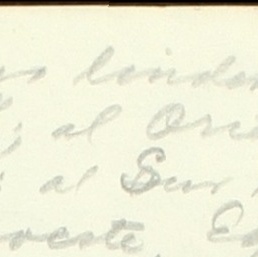 linder
; al Orie
; al Sur,
oeste. E